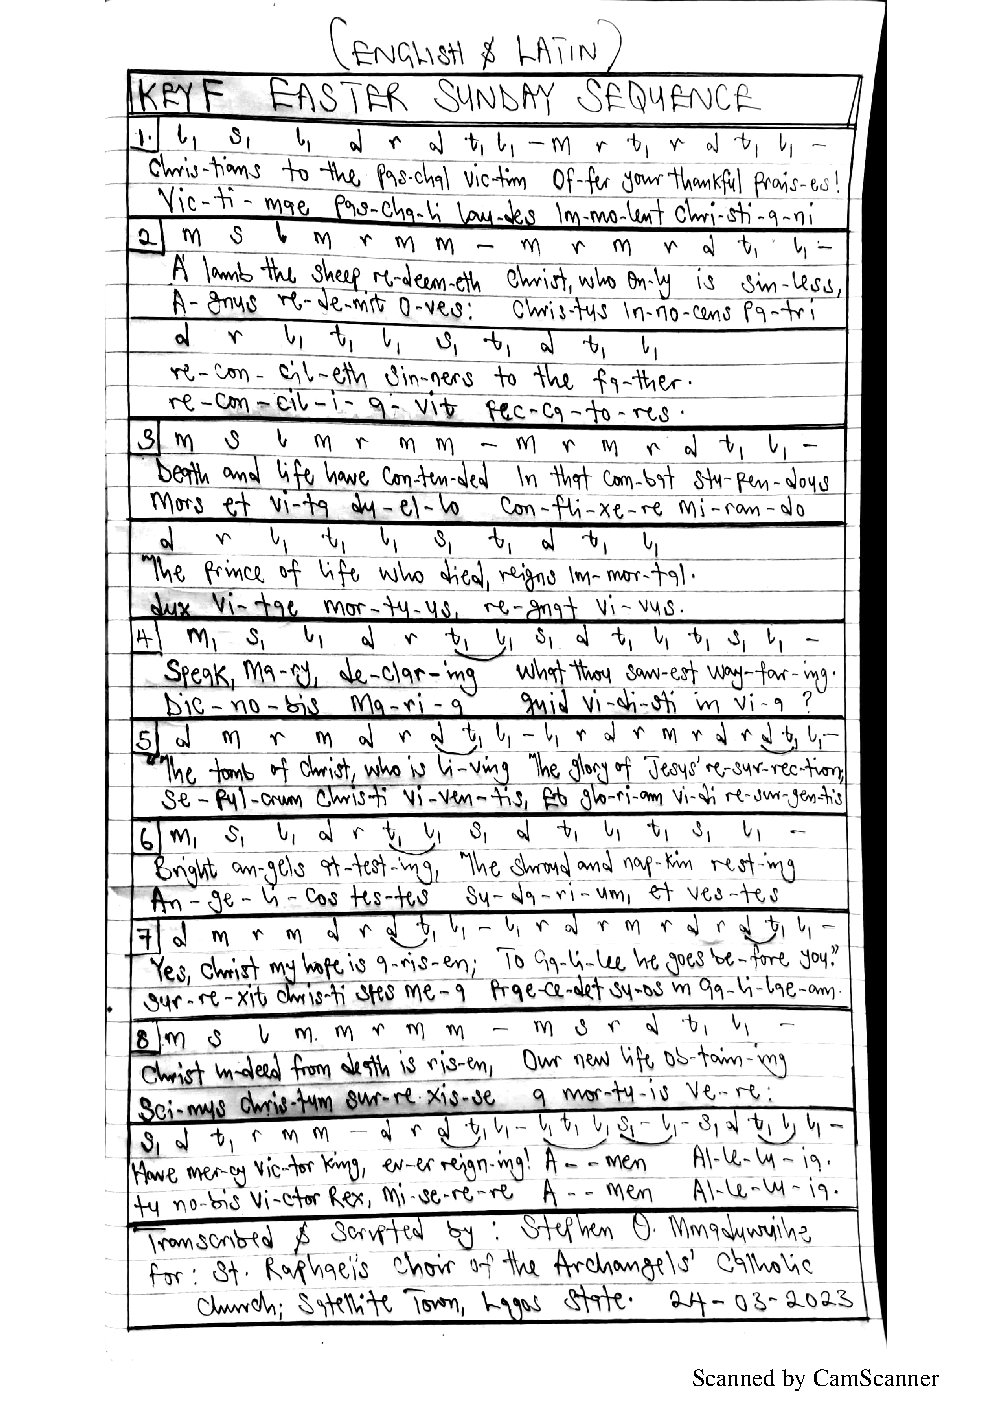 (ENGLISH & LATIN)
KEY F EASTER SUNDAY SEQUENCE
1. l₁ s₁ l₁ d r d t₁ l₁ – m r t₁ r d t₁ l₁ –
Chris-tians to the pas-chal vic-tim Of-fer your thankful prais-es!
Vic-ti-mae pas-cha-li lau-des Im-mo-lent Chri-sti-a-ni
2 m s l m r m m – m r m r d t₁ l₁ –
A lamb the sheep re-deem-eth Christ, who on-ly is sin-less,
A-gnus re-de-mit o-ves: Chris-tus in-no-cens Pa-tri
d r l₁ t₁ l₁ s₁ t₁ d t₁ l₁
re-con-cil-eth sin-ners to the fa-ther.
re-con-cil-i-a-vit pec-ca-to-res.
3 m s l m r m m – m r m r d t₁ l₁ –
Death and life have con-ten-ded In that com-bat stu-pen-dous
Mors et vi-ta du-el-lo Con-fli-xe-re mi-ran-do
d r l₁ t₁ l₁ s₁ t₁ d t₁ l₁
The Prince of life who died, reigns Im-mor-tal.
dux vi-tae mor-tu-us, re-gnat vi-vus.
4 m₁ s₁ l₁ d r t₁ l₁ s₁ d t₁ l₁ t₁ s₁ l₁ –
Speak, Ma-ry, de-clar-ing What thou saw-est way-far-ing.
Dic-no-bis Ma-ri-a quid vi-di-sti in vi-a?
5 d m r m d r d t₁ l₁ – l₁ r d r m r d r d t₁ l₁ –
"The tomb of Christ, who is li-ving The glory of Jesus' re-sur-rec-tion;
Se-pul-crum Christi vi-ven-tis, Et glo-ri-am vi-di re-sur-gen-tis
6 m₁ s₁ l₁ d r t₁ l₁ s₁ d t₁ l₁ t₁ s₁ l₁ –
Bright an-gels at-test-ing, The shroud and nap-kin rest-ing
An-ge-li-cos tes-tes su-da-ri-um, et ves-tes
7 d m r m d r d t₁ l₁ – l₁ r d r m r d r d t₁ l₁ –
Yes, Christ my hope is a-ris-en; To Ga-li-lee he goes be-fore you."
Sur-re-xit Chris-ti spes me-a Prae-ce-det su-os in Ga-li-lae-am.
8 m s l m. m r m m – m s r d t₁ l₁ –
Christ in-deed from death is ris-en, Our new life ob-tain-ing
Sci-mus chris-tum sur-re-xis-se a mor-tu-is ve-re:
s₁ d t₁ r m m – d r d t₁ l₁ – l₁ t₁ l₁ s₁ – l₁ – s₁ d t₁ l₁ l₁ –
Have mer-cy Vic-tor King, ev-er reign-ing! A--men Al-le-lu-ia.
tu no-bis Vi-ctor Rex, Mi-se-re-re A--men Al-le-lu-ia.
Transcribed & Scripted by: Stephen O. Mmaduwuihe
for: St. Raphael's Choir of the Archangels' Catholic
Church; Satellite Town, Lagos State. 24-03-2023
Scanned by CamScanner